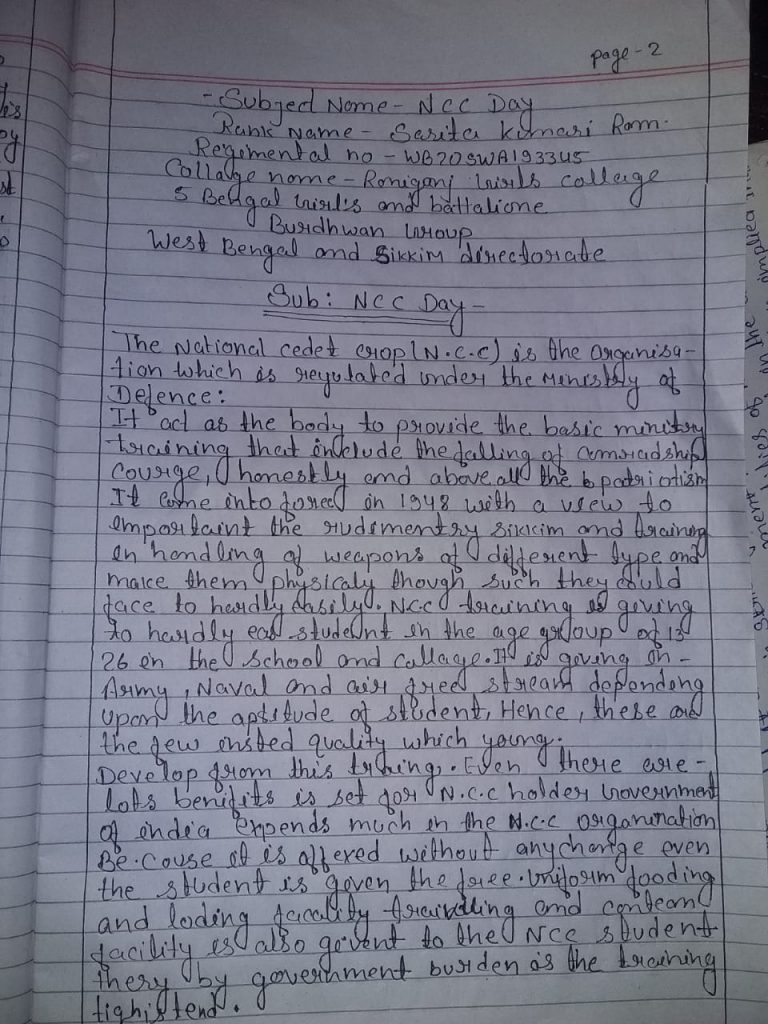 page-2
- Subject Name - NCC Day
Rank Name - Sarita Kumari Ram.
Regimental no - WB20SWA193345
Collage name - Raniganj Girls collage
5 Bengal Girl's and battalione
Burdhwan Group
West Bengal and Sikkim directorate
Sub: NCC Day -
The National cedet crop (N.C.C) is the organisa-
tion which is regulated under the Ministry of
Defence:
It act as the body to provide the basic minitry
training that include the falling of comradship
courge, honestly and above all the patriotism
It came into forced in 1948 with a view to
emportaint the rudimentry sikkim and training
in handling of weapons of different type and
make them physicaly though such they could
face to hardly easily. NCC training is giving
to hardly eas student in the age group of 13
26 in the school and callage. It is giving in -
Army, Naval and air freed stream dependong
upon the aptitude of student, Hence, these are
the few insted quality which young.
Develop from this traning. Even there are -
lots benifits is set for N.C.C holder Government
of india expends much in the N.C.C organization
Be.couse it is offered without any charge even
the student is given the free. Uniform fooding
and loding facality and canteen
facility is also givent to the NCC student
thery by government burden is the training